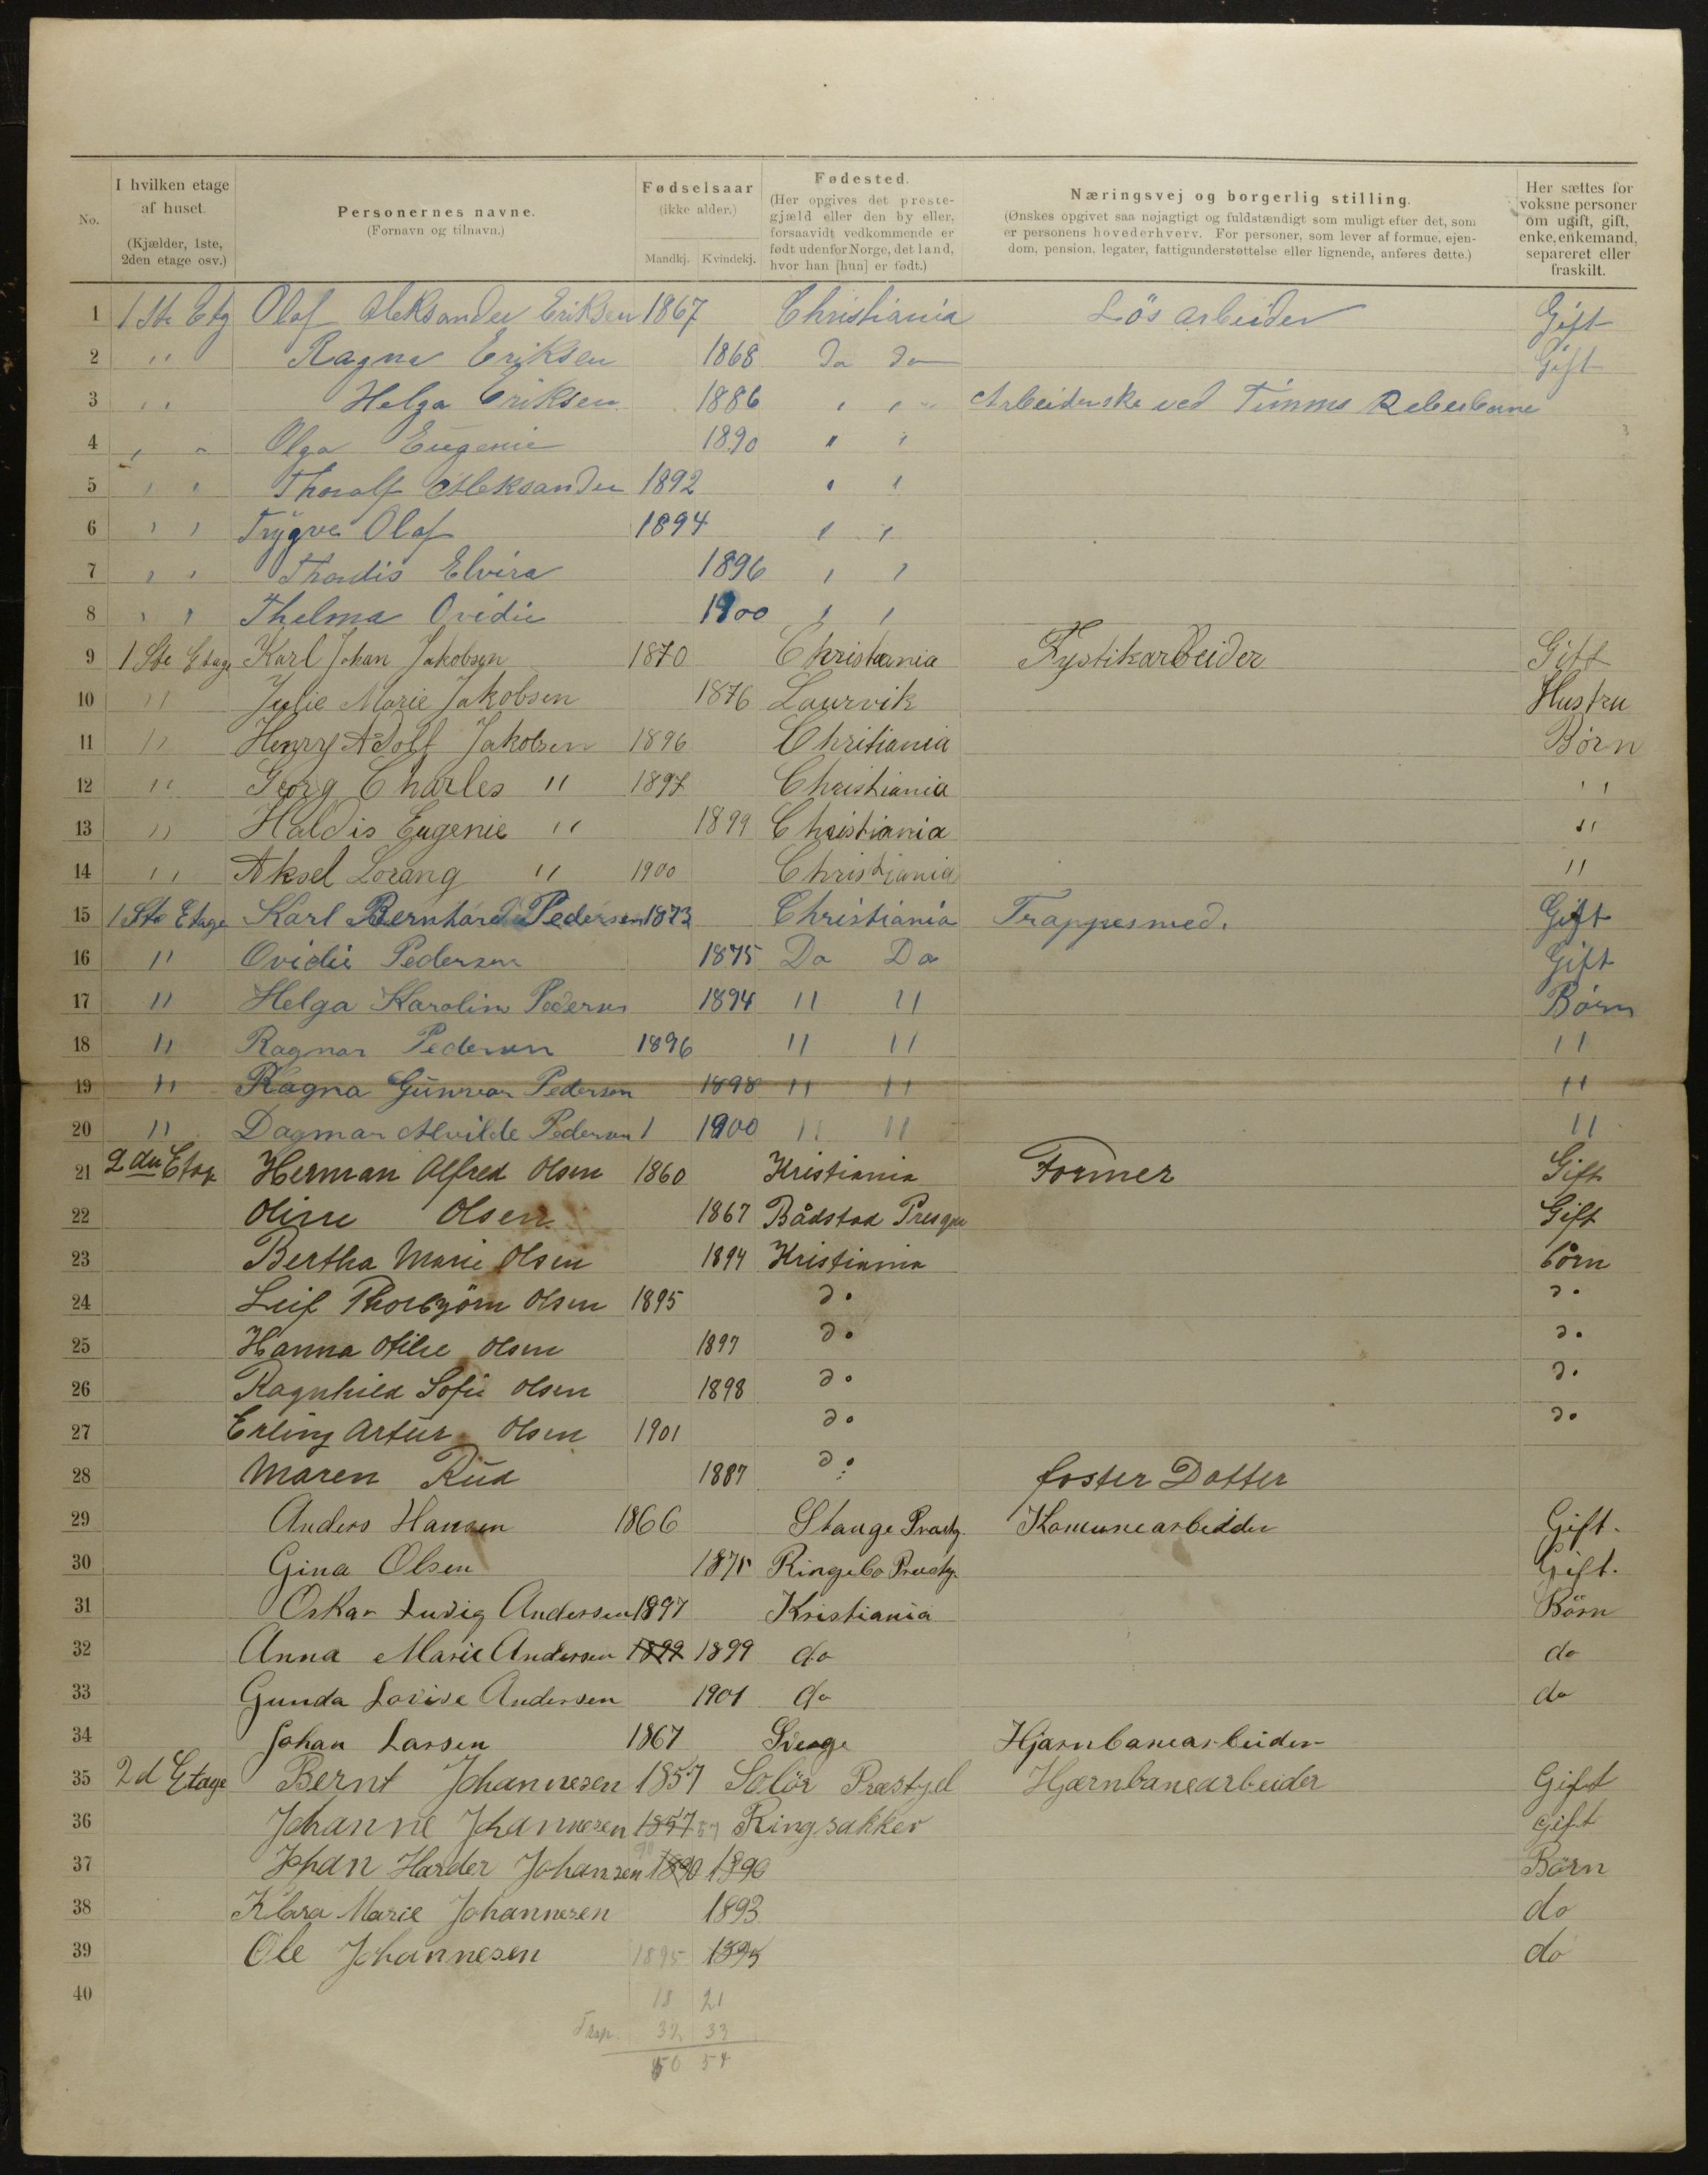 No. | I hvilken etage af huset. (Kjælder, 1ste, 2den etage osv.) | Personernes navne. (Fornavn og tilnavn.) | Fødselsaar (ikke alder.) Mandkj. Kvindekj. | Fødested. (Her opgives det prestegjæld eller den by eller, forsaavidt vedkommende er født udenfor Norge, det land, hvor han [hun] er født.) | Næringsvej og borgerlig stilling. (Ønskes opgivet saa nøjagtigt og fuldstændigt som muligt efter det, som er personens hovederhverv. For personer, som lever af formue, ejendom, pension, legater, fattigunderstøttelse eller lignende, anføres dette.) | Her sættes for voksne personer om ugift, gift, enke, enkemand, separeret eller fraskilt.
1 1 Ste Etg Olaf Aleksander Eriksen 1867 Christiania Lös arbeider Gift
2 " Ragna Eriksen 1868 Do do Gift
3 " Helga Eriksen 1886 " " Arbeiderske ved Timms Reberbane
4 " " Olga Eugenie 1890 " "
5 " " Thoralf Aleksander 1892 " "
6 " " Trygve Olaf 1894 " "
7 " " Thordis Elvira 1896 " "
8 " " Thelma Ovidie 1900 " "
9 1 Ste Etage Karl Johan Jakobsen 1870 Christiania Fystikarbeider Gift
10 " Julie Marie Jakobsen 1876 Laurvik Hustru
11 " Henry Adolf Jakobsen 1896 Chritiania Børn
12 " Georg Charles " 1897 Christiania "
13 " Haldis Eugenie " 1899 Christiania "
14 " Aksel Lorang " 1900 Christiania "
15 1 Ste Etage Karl Bernhard Pedersen 1873 Christiania Trappesmed. Gift
16 " Ovidie Pedersen 1875 Do Do Gift
17 " Helga Karoline Pedersen 1894 " " Börn
18 " Ragnar Pedersen 1896 " " "
19 " Ragna Gunvor Pedersen 1898 " " "
20 " Dagmar Alvilde Pedersen 1 1900 " " "
21 2den Etage Herman Alfred Olsen 1860 Kristiania Former Gift
22 Oline Olsen 1867 Bådstad Presgn Gift
23 Bertha Marie Olsen 1894 Kristiania börn
24 Leif Thorbjörn Olsen 1895 do do
25 Hanna Otilie Olsen 1897 do do
26 Ragnhild Sofie Olsen 1898 do do
27 Erling Artur Olsen 1901 do do
28 Maren Rud 1887 do foster Dotter
29 Anders Hansen 1866 Stange Prastg. Komunearbeidder Gift.
30 Gina Olsen 1875 Ringebo Prestg. Gift.
31 Oskar Ludvig Andersen 1897 Kristiania Börn
32 Anna Marie Andersen 1899 1899 do do
33 Gunda Lovise Andersen 1901 do do
34 Johan Larsen 1867 Hjarnbanearbeider
35 2d Etage Bernt Johannesen 1857 Solör Præstgjel Hjærnbanearbeider Gift
36 Johanne Johannesen 1857 57 Ringsakker gift
37 Johan Harder Johansen 90 1890 1890 Børn
38 Klara Marie Johannesen 1893 do
39 Ole Johannesen 1895 1895 do
40
18 21
32 33
50 54